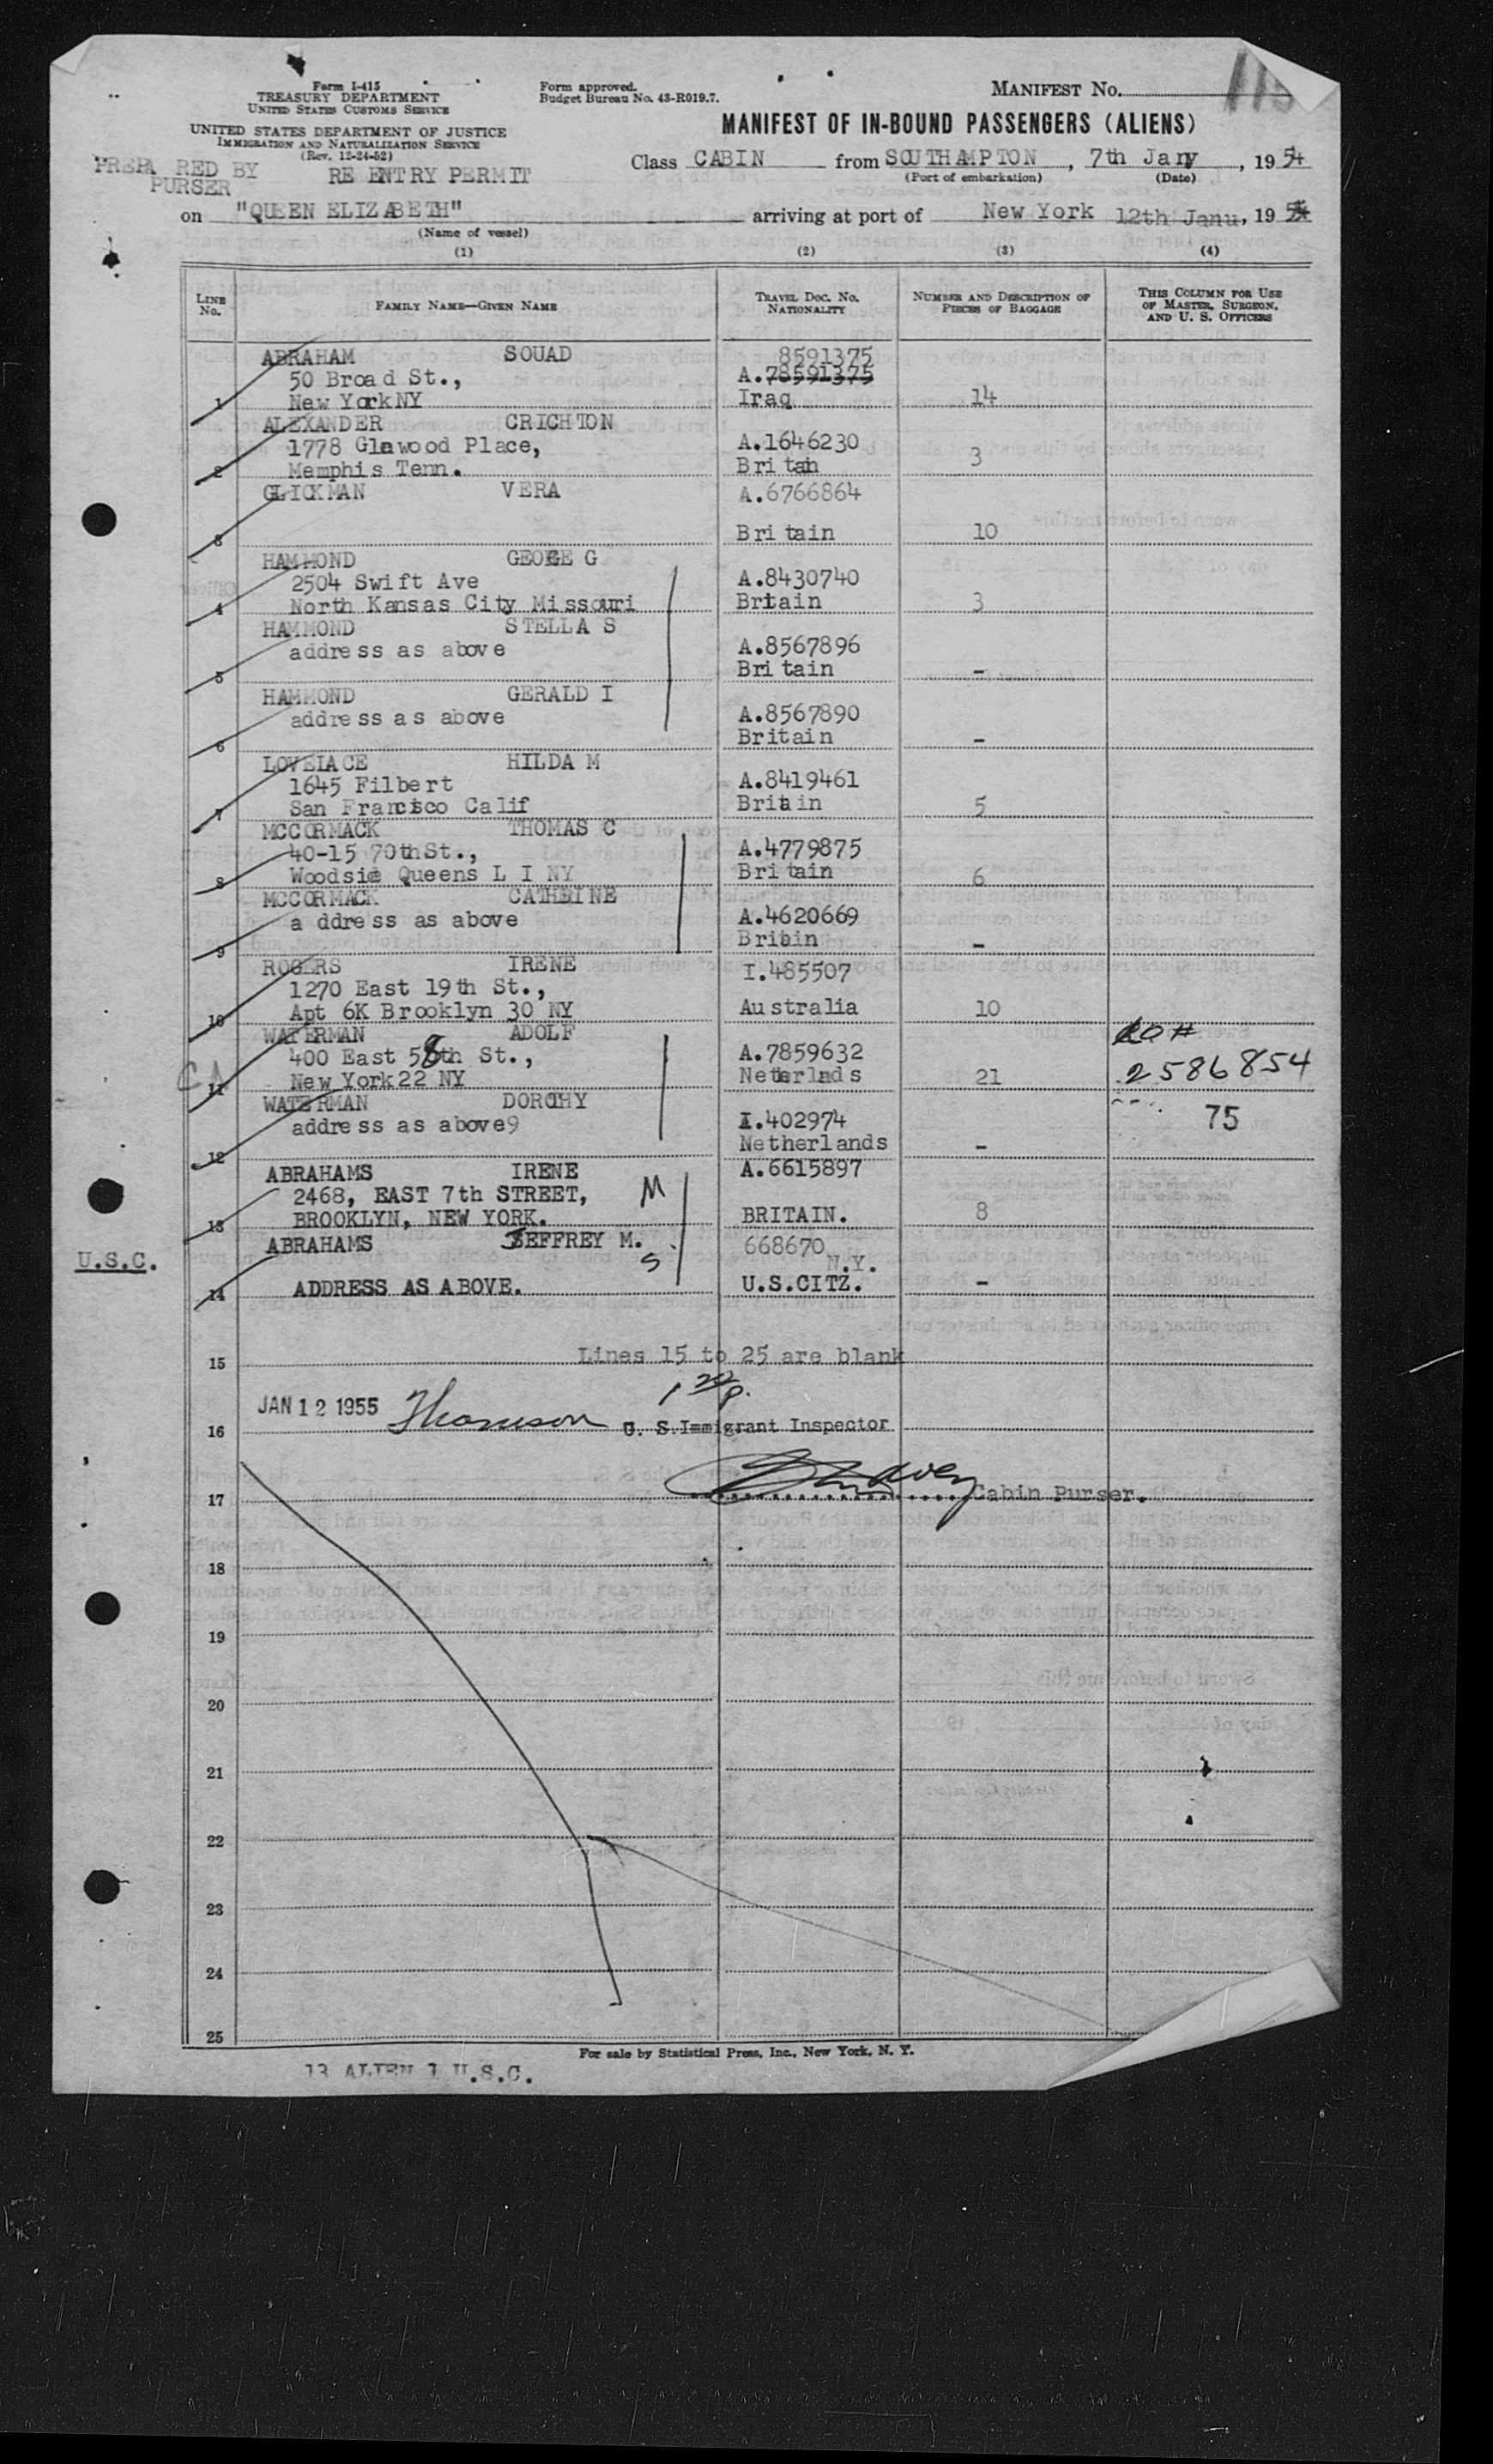 Form I-415
TREASURY DEPARTMENT
UNITED STATES CUSTOMS SERVICE
UNITED STATES DEPARTMENT OF JUSTICE
IMMIGRATION AND NATURALIZATION SERVICE
(Rev. 12-24-52)
Form approved.
Budget Bureau No. 43-R019.7.
MANIFEST No.
MANIFEST OF IN-BOUND PASSENGERS (ALIENS)
PREPA RED BY
PURSER
RE ENTRY PERMIT
Class CABIN from SOUTHAMPTON, 7th Jany, 1954
(Port of embarkation) (Date)
on "QUEEN ELIZABETH" arriving at port of New York 12th Janu, 195
(Name of vessel)
(1) (2) (3) (4)
LINE No. FAMILY NAME—GIVEN NAME TRAVEL DOC. No. NATIONALITY NUMBER AND DESCRIPTION OF PIECES OF BAGGAGE THIS COLUMN FOR USE OF MASTER, SURGEON, AND U. S. OFFICERS
ABRAHAM SOUAD 8591375
50 Broad St., A.78591375
1 New York NY Iraq 14
ALEXANDER CRICHTON
1778 Glewood Place, A.1646230
2 Memphis Tenn. Britah 3
GLICKMAN VERA A.6766864
3 Britain 10
HAMMOND GEORGE G
2504 Swift Ave A.8430740
4 North Kansas City Missouri Britain 3
HAMMOND STELLA S
address as above A.8567896
5 Britain -
HAMMOND GERALD I
address as above A.8567890
6 Britain -
LOVELACE HILDA M
1645 Filbert A.8419461
7 San Francisco Calif Britain 5
MCCORMACK THOMAS C
40-15 70th St., A.4779875
8 Woodsie Queens L I NY Britain 6
MCCORMACK CATHEINE
a ddress as above A.4620669
9 Britain -
ROGERS IRENE I.485507
1270 East 19th St.,
10 Apt 6K Brooklyn 30 NY Australia 10
WATERMAN ADOLF
400 East 58th St., A.7859632
11 New York 22 NY Netherlnds 21 2586854
WATERMAN DOROTHY 75
address as above9 I.402974
12 Netherlands -
ABRAHAMS IRENE A.6615897
2468, EAST 7th STREET, M
13 BROOKLYN, NEW YORK. BRITAIN. 8
ABRAHAMS JEFFREY M. 668670
S N.Y.
U.S.C.
14 ADDRESS AS ABOVE. U.S.CITZ. -
15 Lines 15 to 25 are blank
JAN 12 1955
16 U. S. Immigrant Inspector
17 Cabin Purser.
18
19
20
21
22
23
24
25
For sale by Statistical Press, Inc., New York, N. Y.
13 ALIEN 1 U.S.C.